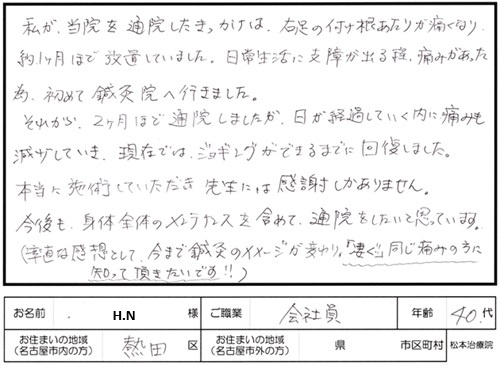 私が、当院を通院したきっかけは、右足の付け根あたりが痛くなり、
約1ヶ月ほど放置していました。日常生活に支障が出る程、痛みがあった
為、初めて鍼灸院へ行きました。
それから、2ヶ月ほど通院しましたが、日が経過していく内に痛みも
減少していき、現在では、ジョギングができるまでに回復しました。
本当に施術していただき先生には感謝しかありません。
今後も、身体全体のメンテナンスを含めて、通院をしたいと思っています。
(率直な感想として、今まで鍼灸のイメージが変わり。同じ痛みの方に
知って頂きたいです!!)
お名前 . H.N 様 ご職業 会社員 年齢 40.代
お住まいの地域(名古屋市内の方) 熱田 区 お住まいの地域(名古屋市外の方) 県 市区町村 松本治療院